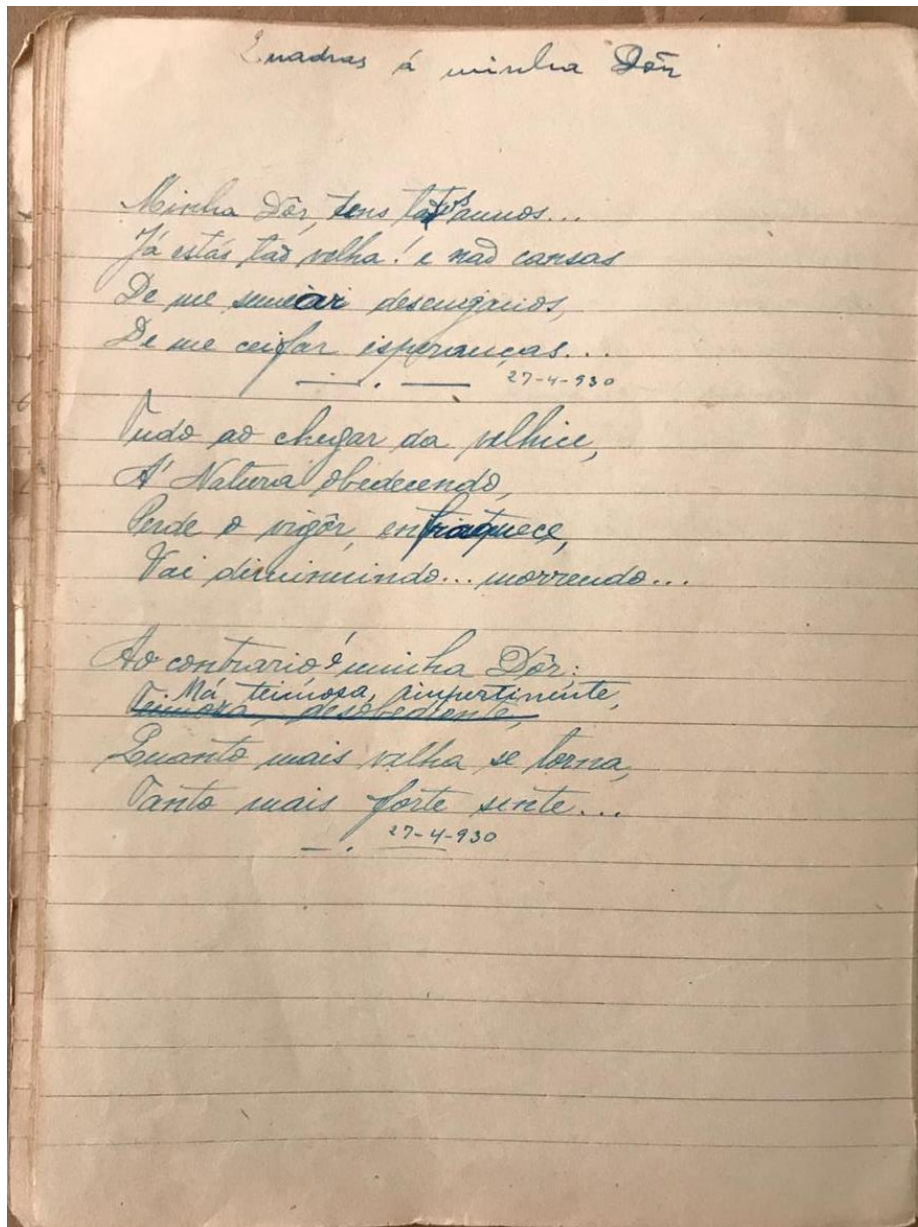 Quadras á minha Dôr
Minha Dôr, tens tantos annos...
Já estás tão velha! e não cansas
De me semear desenganos,
De me ceifar esperanças...
27-4-930
Tudo ao chegar da velhice,
A' Natura obedecendo,
Perde o vigôr, enfraquece,
Vai diminuindo... morrendo...
Ao contrario é minha Dôr:
Má, teimosa, impertinente,
Teimosa, desobediente,
Quanto mais velha se torna,
Tanto mais forte sinte...
27-4-930